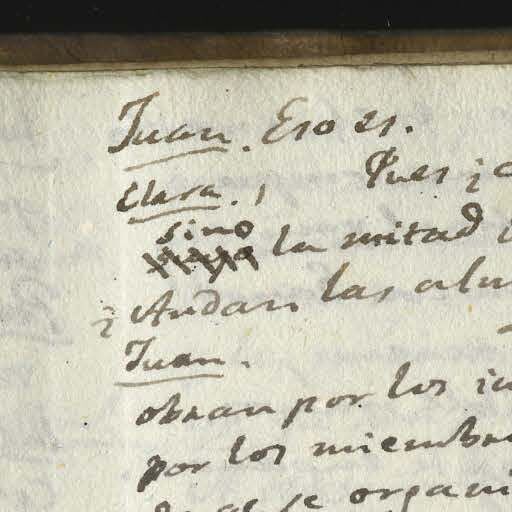 Juan. Eso es.
Clara. Pues ¿
sino
la mitad
¿Andan las alm
Juan.
obran por los in
por los miembro
se organi